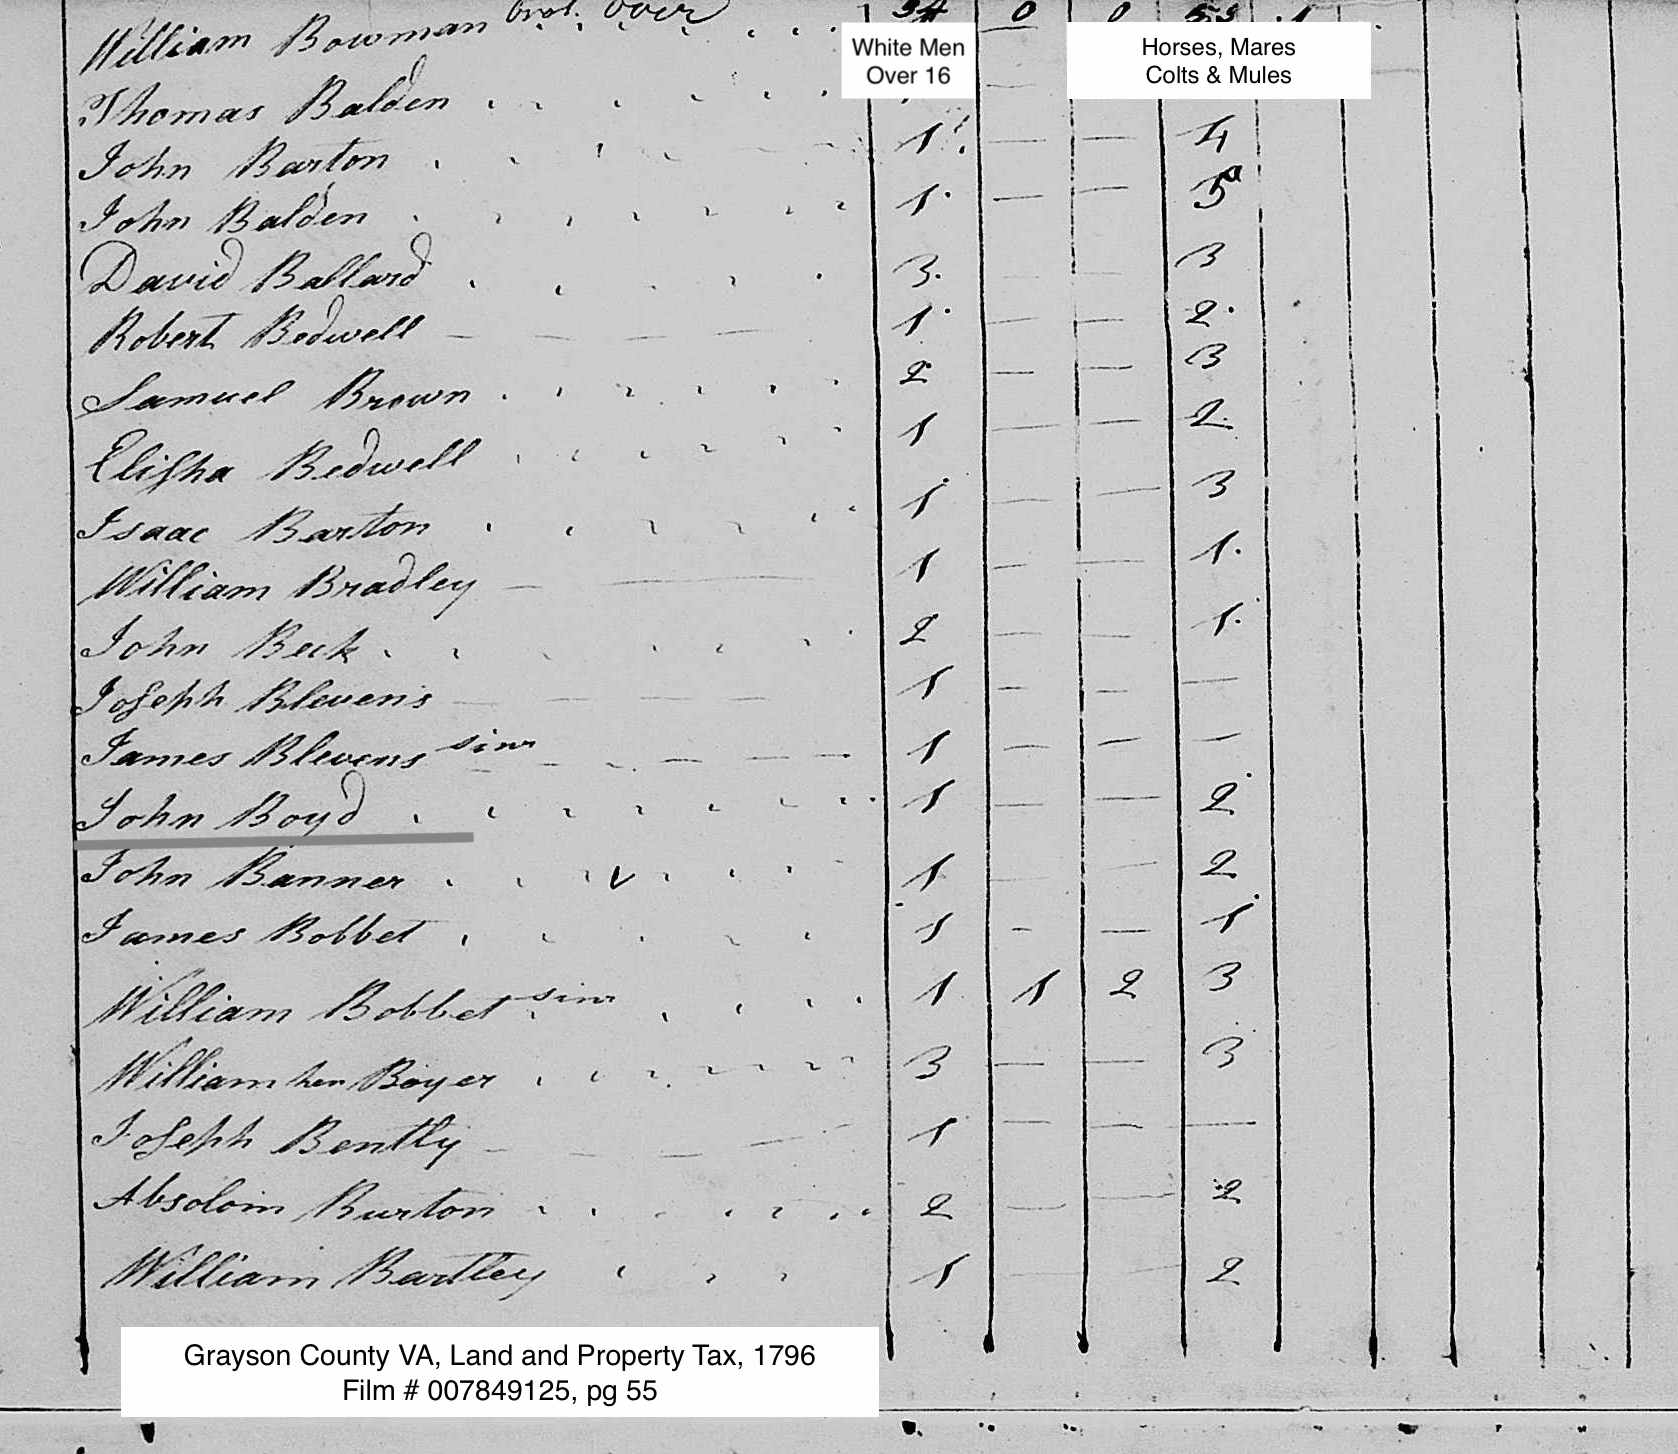 brot. over 34 0 0 53 . 1
William Bowman
White Men
Over 16
Horses, Mares
Colts & Mules
Thomas Balden
John Barton 1 — — 4
John Balden 1 — — 5
David Ballard 3 — — 3
Robert Bedwell 1 — — 2
Samuel Brown 2 — — 3
Elisha Bedwell 1 — — 2
Isaac Barton 1 — — 3
William Bradley 1 — — 1
John Beck 2 — — 1
Joseph Blevens 1 — — —
James Blevens sinr 1 — — —
John Boyd 1 — — 2
John Banner 1 — — 2
James Bobbet 1 — — 1
William Bobbet sinr 1 1 2 3
William hen Boyer 3 — — 3
Joseph Bently 1 — — —
Absolom Burton 2 — — 2
William Bartley 1 — — 2
Grayson County VA, Land and Property Tax, 1796
Film # 007849125, pg 55